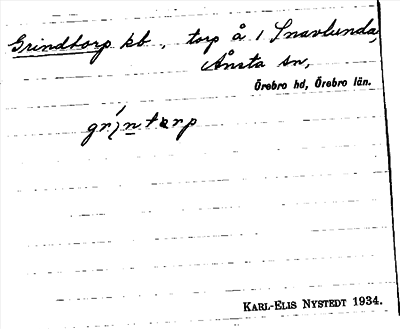 Grindtorp kb, torp å 1 Snavlunda,
Ånsta sn,
Örebro hd, Örebro län.
gri/ntorp
KARL-ELIS NYSTEDT 1934.